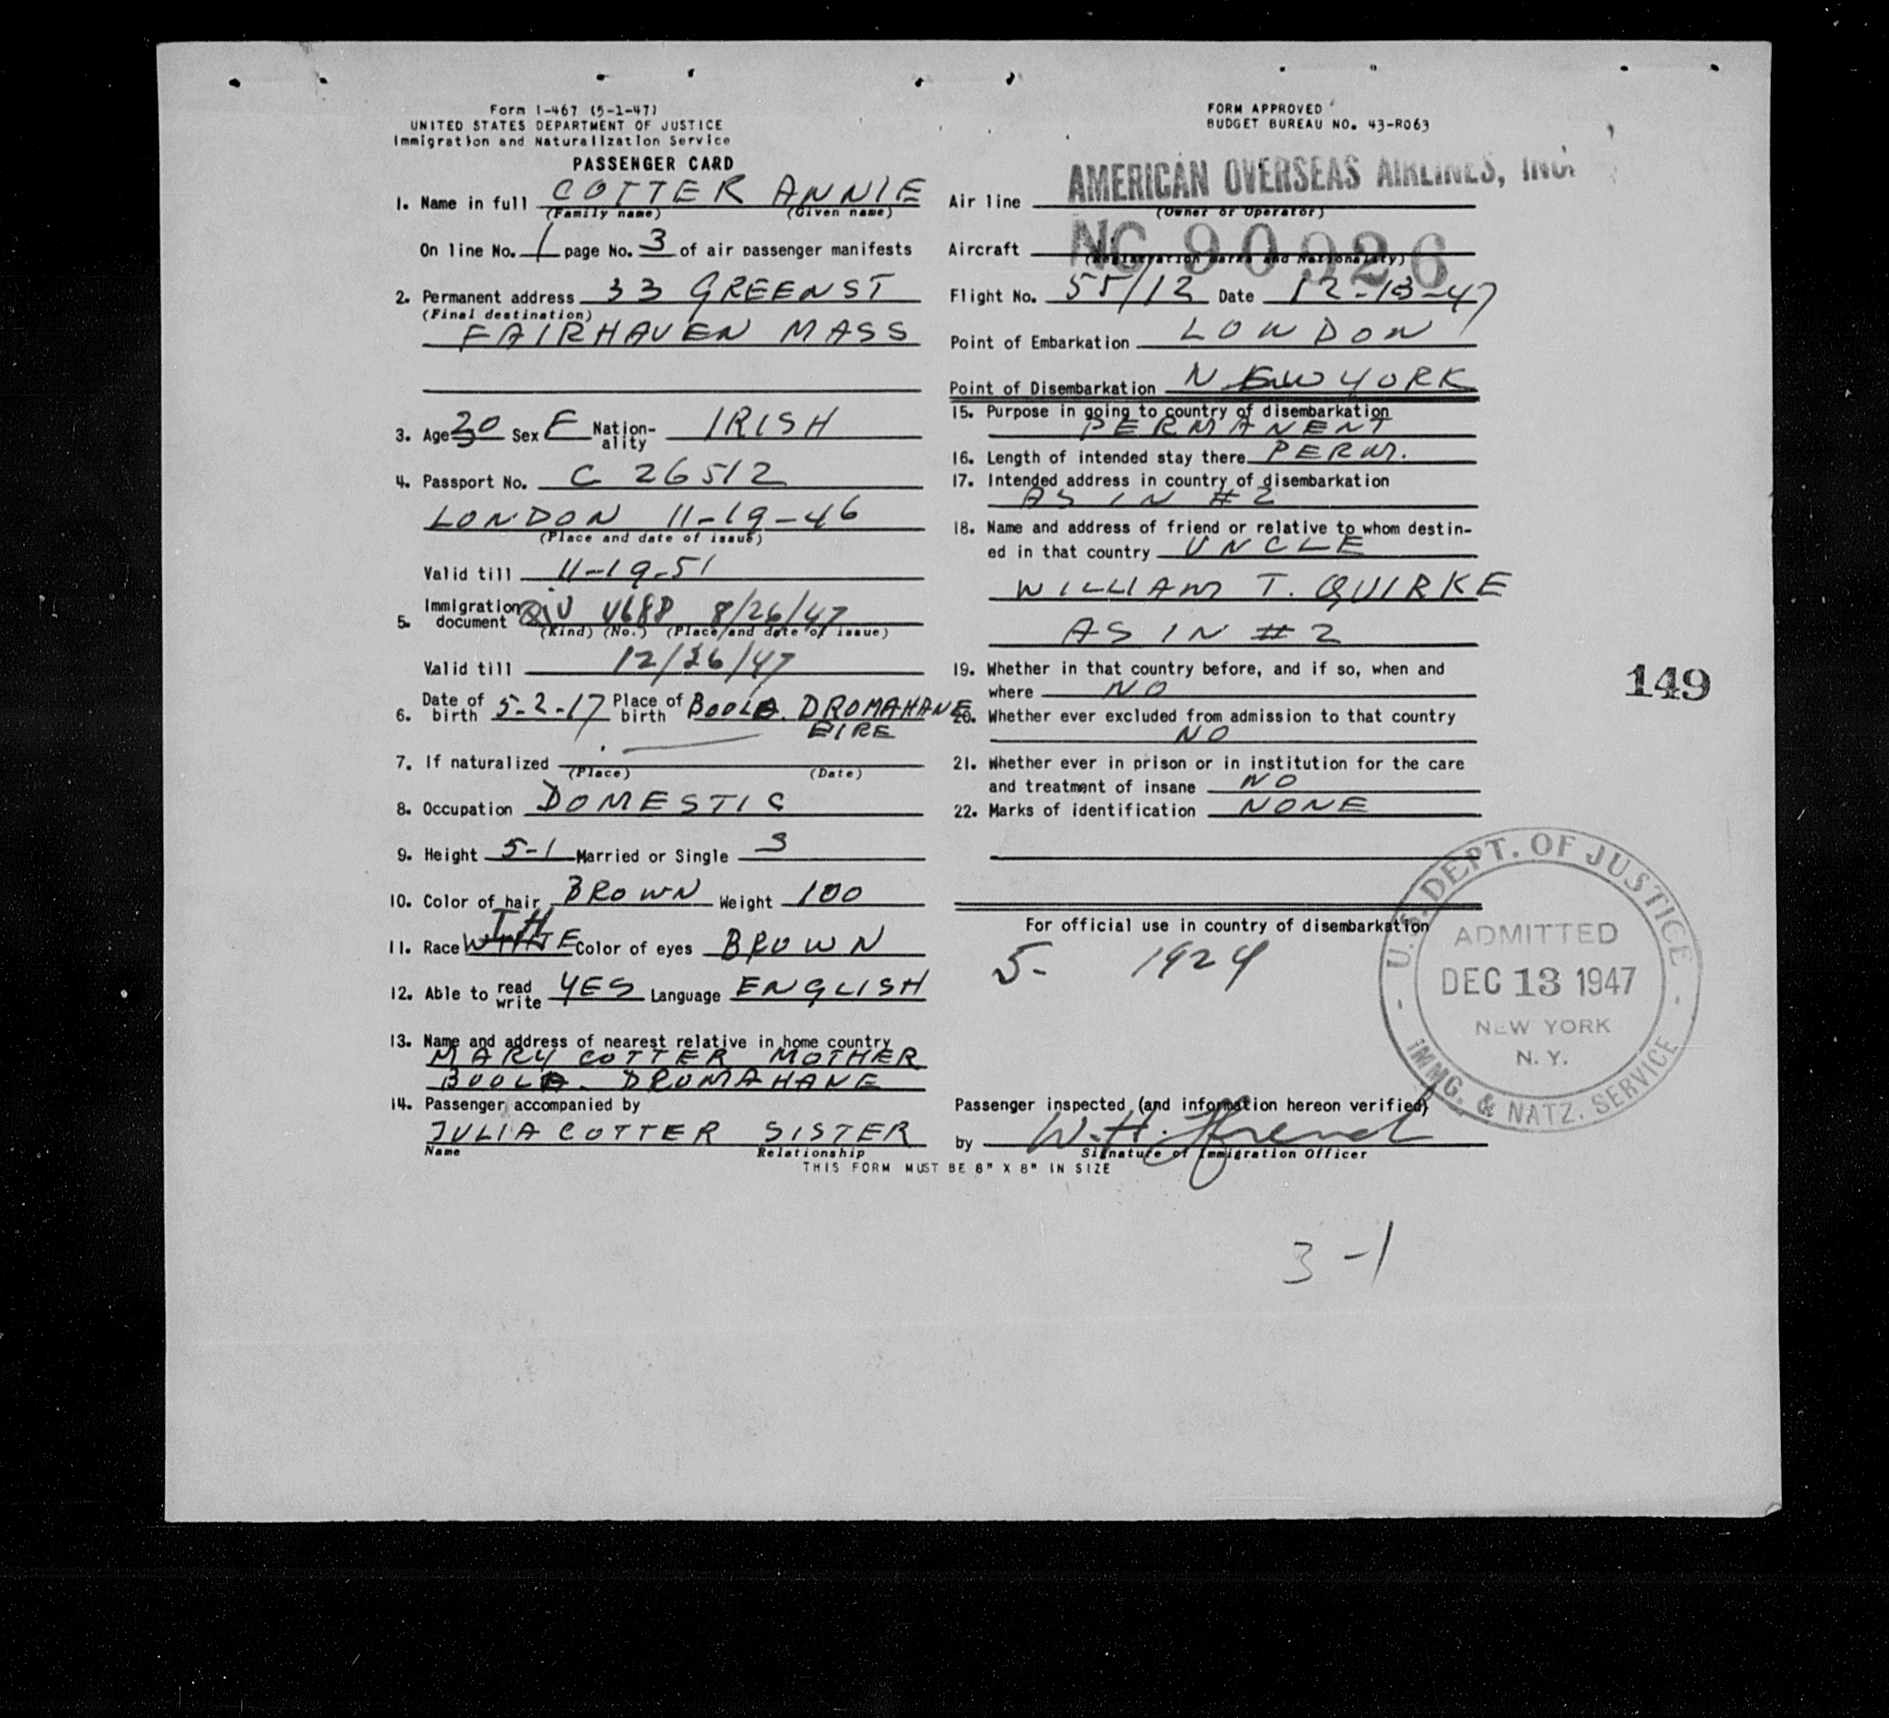 Form I-467 (5-1-47)
UNITED STATES DEPARTMENT OF JUSTICE
Immigration and Naturalization Service
PASSENGER CARD
1. Name in full COTTER ANNIE
(Family name) (Given name)
On line No. 1 page No. 3 of air passenger manifests
2. Permanent address 33 GREEN ST
(Final destination)
FAIRHAVEN MASS
3. Age 30 Sex F Nation-ality IRISH
4. Passport No. C 26512
LONDON 11-19-46
(Place and date of issue)
Valid till 11-19-51
5. Immigration document QIV 4688 8/26/47
(Kind) (No.) (Place and date of issue)
Valid till 12/26/47
6. Date of birth 5-2-17 Place of birth DROMAHANE
EIRE
7. If naturalized
(Place) (Date)
8. Occupation DOMESTIC
9. Height 5-1 Married or Single S
10. Color of hair BROWN Weight 100
11. Race WHITE Color of eyes BROWN
12. Able to read write YES Language ENGLISH
13. Name and address of nearest relative in home country
MARY COTTER MOTHER
DROMAHANE
14. Passenger accompanied by
JULIA COTTER SISTER
Name Relationship
THIS FORM MUST BE 8" X 8" IN SIZE
FORM APPROVED
BUDGET BUREAU NO. 43-R063
Air line AMERICAN OVERSEAS AIRLINES, INC.
(Owner or Operator)
Aircraft NC 90926
(Registration Marks and Nationality)
Flight No. 55/12 Date 12-13-47
Point of Embarkation LONDON
Point of Disembarkation NEW YORK
15. Purpose in going to country of disembarkation
PERMANENT
16. Length of intended stay there PERM.
17. Intended address in country of disembarkation
AS IN #2
18. Name and address of friend or relative to whom destin-
ed in that country UNCLE
WILLIAM T. QUIRKE
AS IN #2
19. Whether in that country before, and if so, when and
where NO
20. Whether ever excluded from admission to that country
NO
21. Whether ever in prison or in institution for the care
and treatment of insane NO
22. Marks of identification NONE
For official use in country of disembarkation
5- 1924
U.S. DEPT. OF JUSTICE
ADMITTED
DEC 13 1947
NEW YORK
N. Y.
IMMG. & NATZ. SERVICE
Passenger inspected (and information hereon verified)
by W. H.
Signature of Immigration Officer
3-1
149